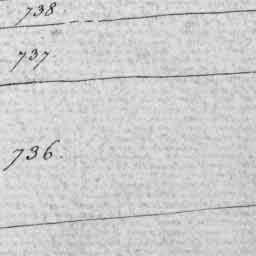 738.
737
736.